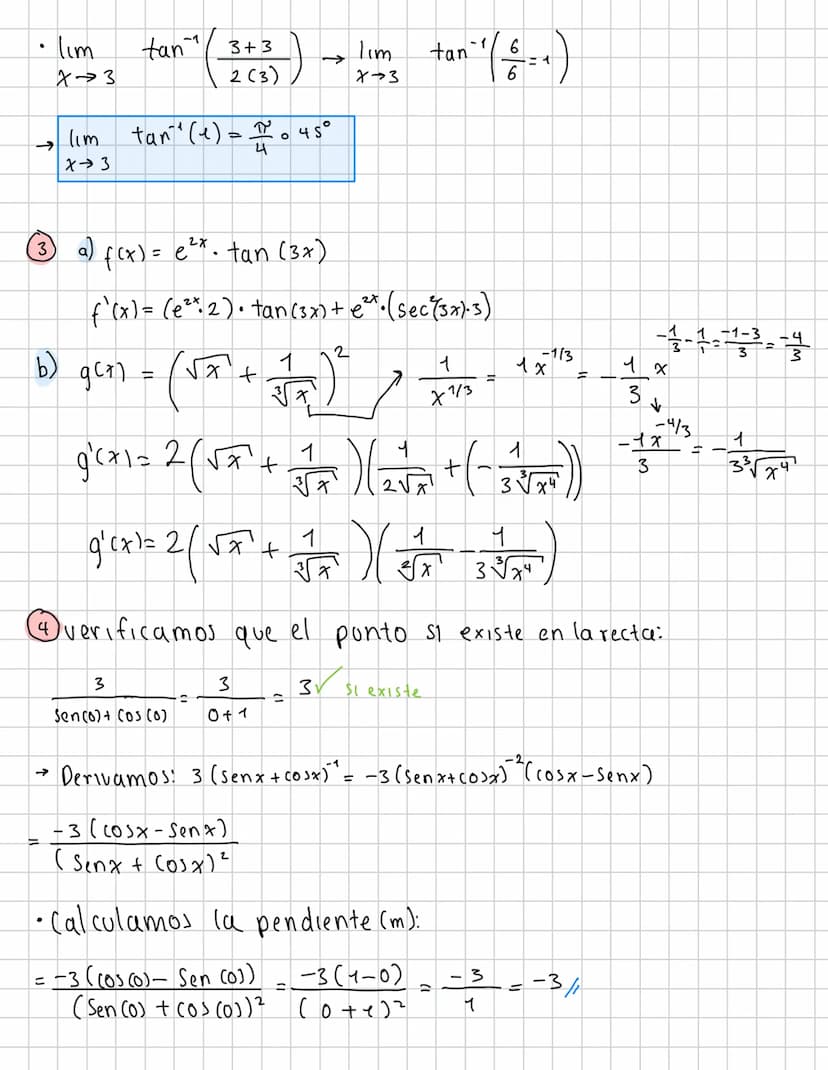 • lim x→3 tan⁻¹((3+3)/(2(3))) → lim x→3 tan⁻¹(6/6 = 1)
→ lim x→3 tan⁻¹(1) = π/4 o 45°
③ a) f(x) = e²ˣ · tan (3x)
f'(x) = (e²ˣ·2) · tan(3x) + e²ˣ·(sec²(3x)·3)
b) g(x) = (√x + 1/∛x)² ↗ 1/x^(1/3) = 1x^(-1/3) = -1/3 x^(-1/3 - 1/1 = (-1-3)/3 = -4/3)
g'(x) = 2(√x + 1/∛x)(1/(2√x) + (-1/(3∛x⁴))) (-1x^(-4/3))/3 = -1/(3∛x⁴)
g'(x) = 2(√x + 1/∛x)(1/²√x - 1/(3∛x⁴))
④ verificamos que el punto si existe en la recta:
3/(sen(0)+cos(0)) = 3/(0+1) = 3 ✓ si existe
→ Derivamos: 3(senx+cosx)⁻¹ = -3(senx+cosx)⁻²(cosx-senx)
= (-3(cosx-senx))/(senx + cosx)²
• Calculamos la pendiente (m):
= (-3(cos(0)-sen(0)))/(sen(0)+cos(0))² = (-3(1-0))/(0+1)² = -3/1 = -3//